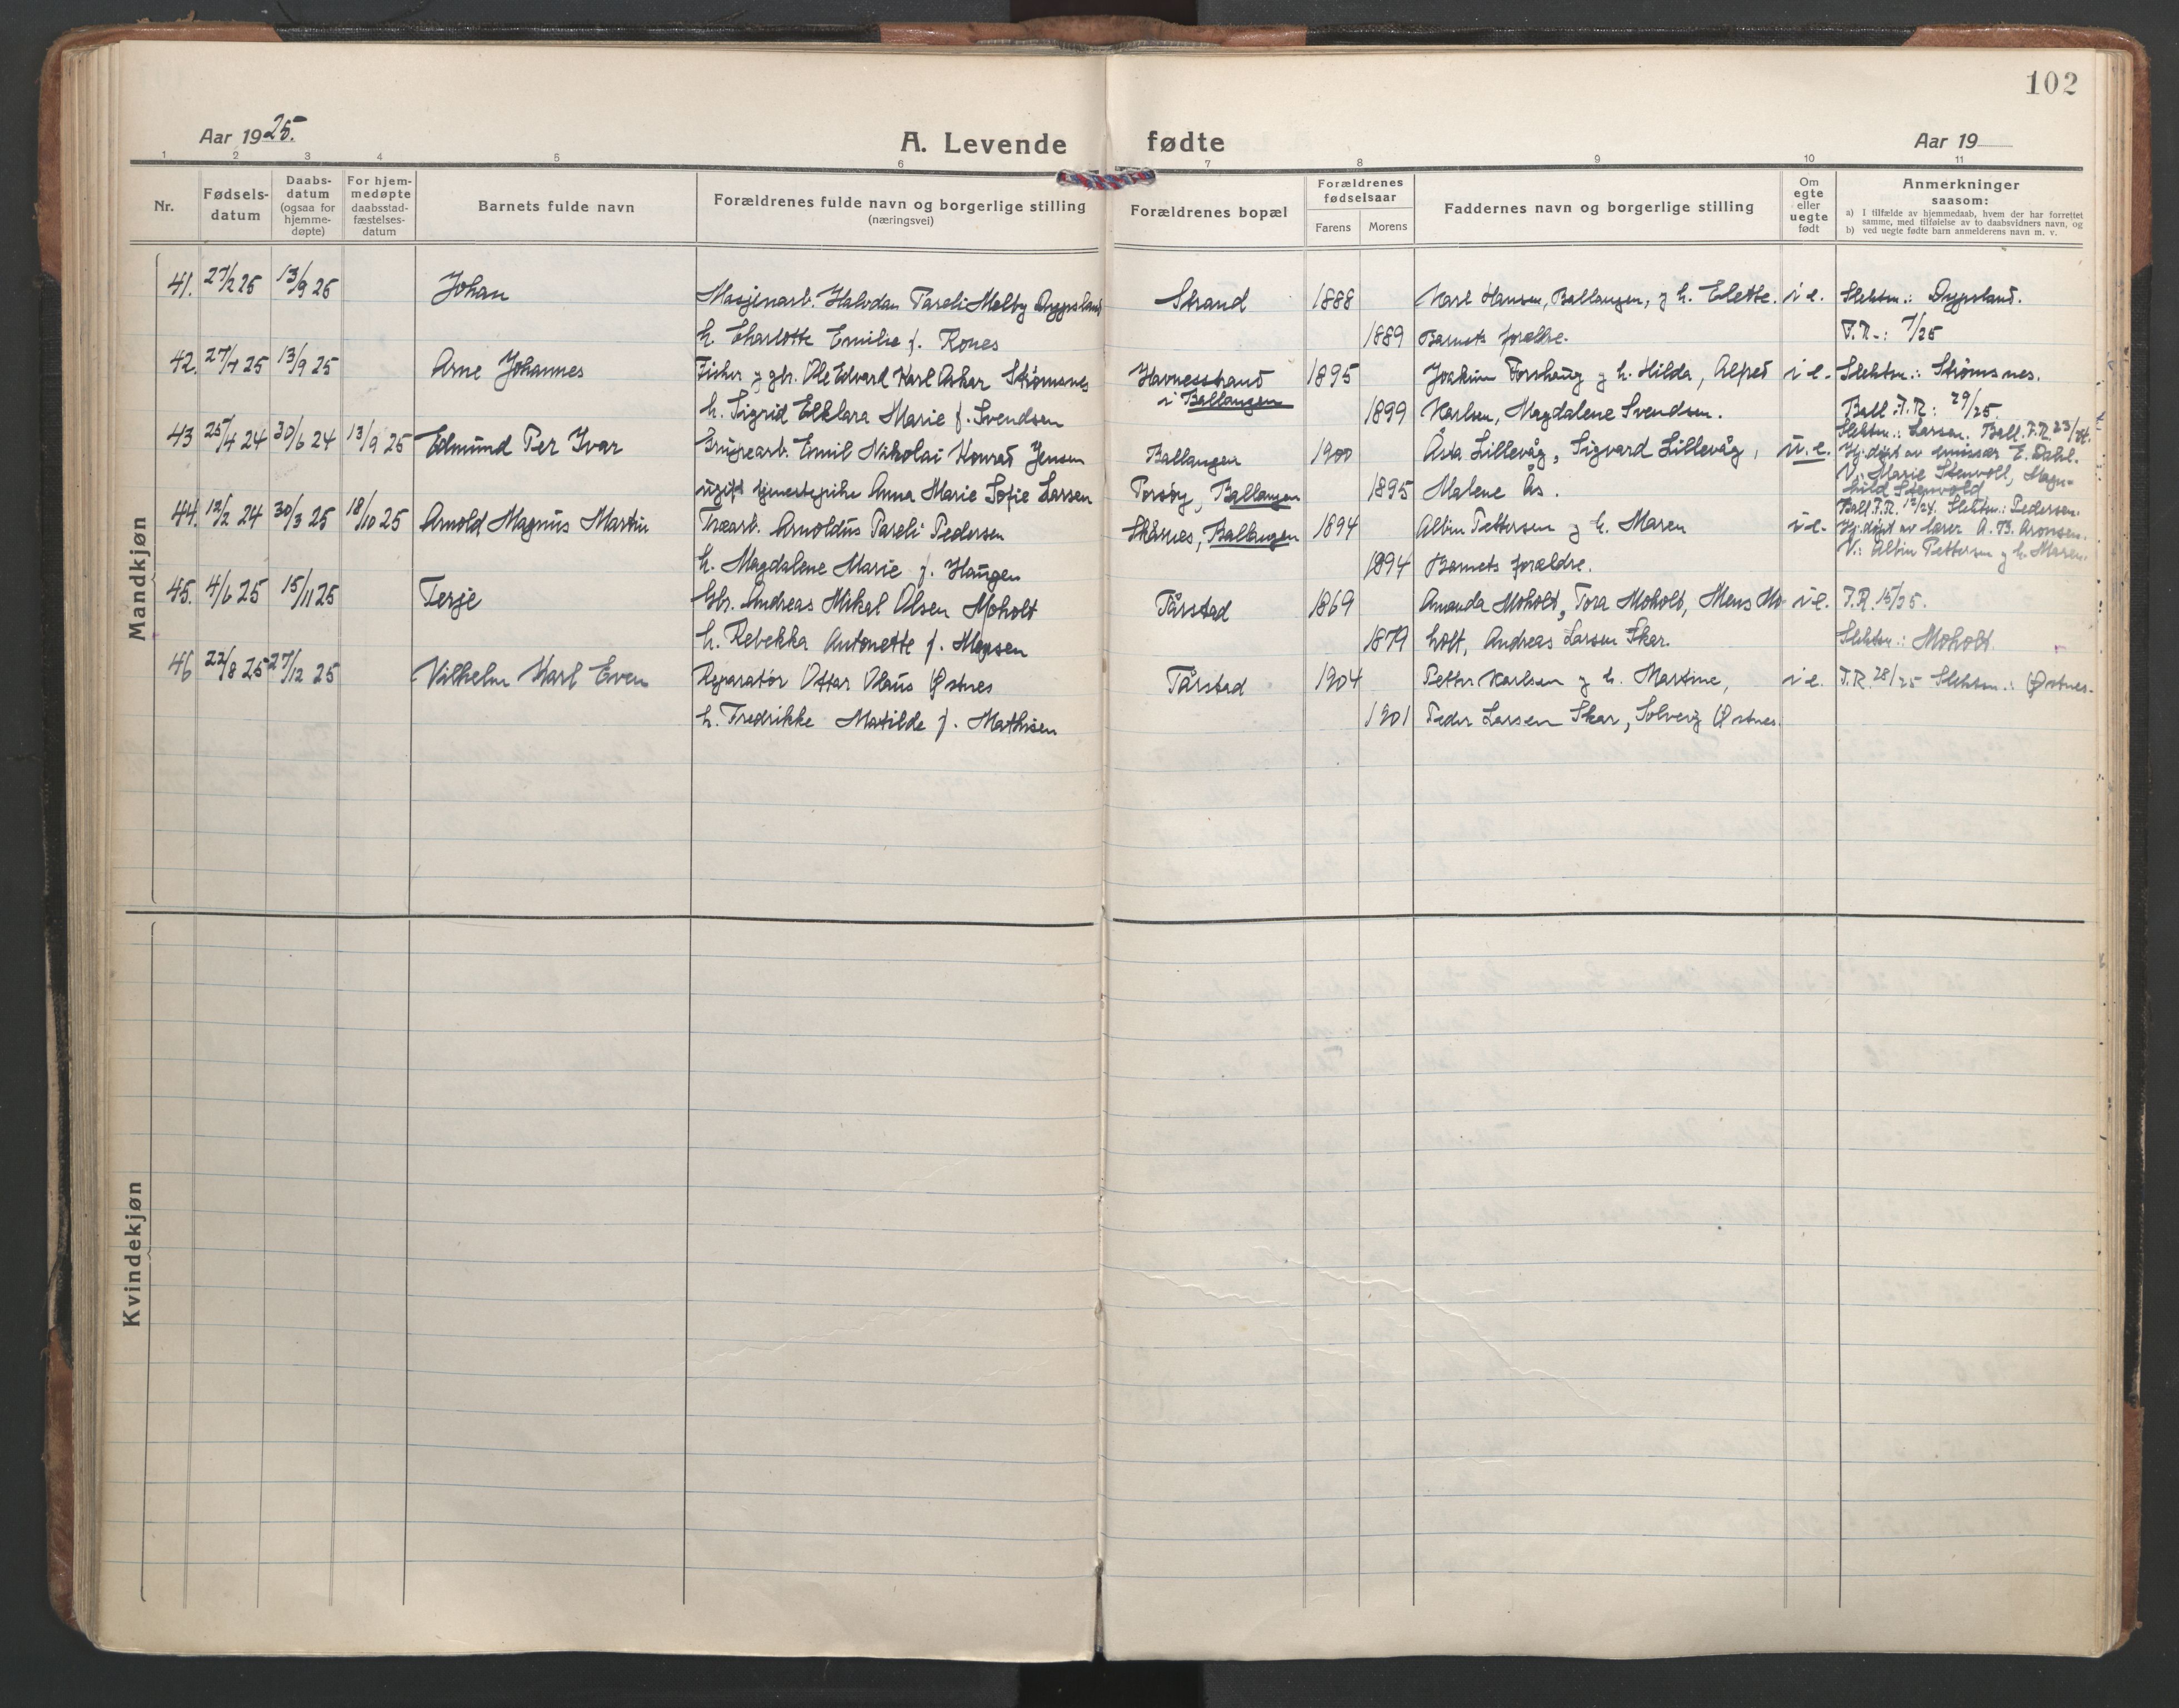 102
Aar 1925.
A. Levende fødte
Aar 19
1 2 3 4 5 6 7 8 9 10 11
Nr.
Fødsels-
datum
Daabs-
datum
(ogsaa for
hjemme-
døpte)
For hjem-
medøpte
daabsstad-
fæstelses-
datum
Barnets fulde navn
Forældrenes fulde navn og borgerlige stilling
(næringsvei)
Forældrenes bopæl
Forældrenes
fødselsaar
Farens Morens
Faddernes navn og borgerlige stilling
Om
egte
eller
uegte
født
Anmerkninger
saasom:
a) I tilfælde av hjemmedaab, hvem der har forrettet
samme, med tilføielse av to daabsvidners navn, og
b) ved uegte fødte barn anmelderens navn m. v.
Mandkjøn
41. 27/2 25 13/9 25 Johan Halvdan Pareli Melby Strand 1888 Karl Hansen, Ballangen, g h. Elette. i e. Slektsn.:
h. Charlotte Emilie f. Rones 1889 Barnets forældre. F.R.: 7/25
42. 27/4 25 13/9 25 Arne Johannes Fisker g gbr. Ole Edvard Karl Oskar Strømsnes Havnesstrand 1895 Joakim Forshaug g h. Hilda, Alfred i e. Slektsn.: Strømsnes.
i Ballangen
h. Sigrid Elklara Marie f. Svendsen 1899 Karlsen, Magdalene Svendsen. Ball. F.R.: 29/25.
43 25/4 24 30/6 24 13/9 25 Edmund Per Ivar Grugearb. Emil Nikolai Konrad Jensen Ballangen 1900 Åsta Lillevåg, Sigvard Lillevåg, u. e. Slektsn.: Larsen. Ball. F.R. 23/24.
Hj.døpt av emissær E. Dahl.
ugift tjenestepike Anna Marie Sofie Larsen Forsøy, Ballangen 1895 Malene Ås. V.: Marie Stenvoll, Magn-
hild Stenvold
44. 12/2 24 30/3 25 18/10 25 Arnold Magnus Martin Træarb. Arnoldus Pareli Pedersen Skårnes, Ballangen 1894 Albin Pettersen g h. Maren i e. Ball. F.R. 12/24. Slektsn.: Pedersen.
Hj.døpt av lærer A. B. Aronsen.
V.: Albin Pettersen g h. Maren.
h. Magdalene Marie f. Haugen 1894 Barnets forældre.
45. 4/6 25 15/11 25 Terje Gbr. Andreas Mikal Olsen Moholt Tårstad 1869 Amanda Moholt, Tora Moholt, Mens Mo- i e. F.R. 15/25.
h. Rebekka Antonette f. Monsen 1879 holt, Andreas Larsen Skar. Slektsn.: Moholt.
46 22/8 25 27/12 25 Vilhelm Karl Even Reparatør Ottar Olaus Østnes Tårstad 1904 Petter Karlsen g h. Martine, i e. F.R. 28/25 Slektsn.: Østnes.
h. Fredrikke Matilde f. Mathisen 1901 Peder Larsen Skar, Solveig Østnes.
Kvindekjøn